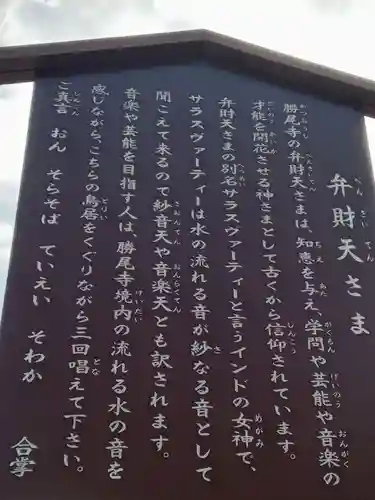 弁財天さま
勝尾寺の弁財天さまは、知恵を与え、学問や芸能や音楽の
才能を開花させる神さまとして古くから信仰されています。
弁財天さまの別名サラスヴァーティーと言うインドの女神で、
サラスヴァーティーは水の流れる音が紗なる音として
聞こえて来るので紗音天や音楽天とも訳されます。
音楽や芸能を目指す人は、勝尾寺境内の流れる水の音を
感じながら、こちらの鳥居をくぐりながら三回唱えて下さい。
ご真言　おん　そらそば　ていえい　そわか
合掌